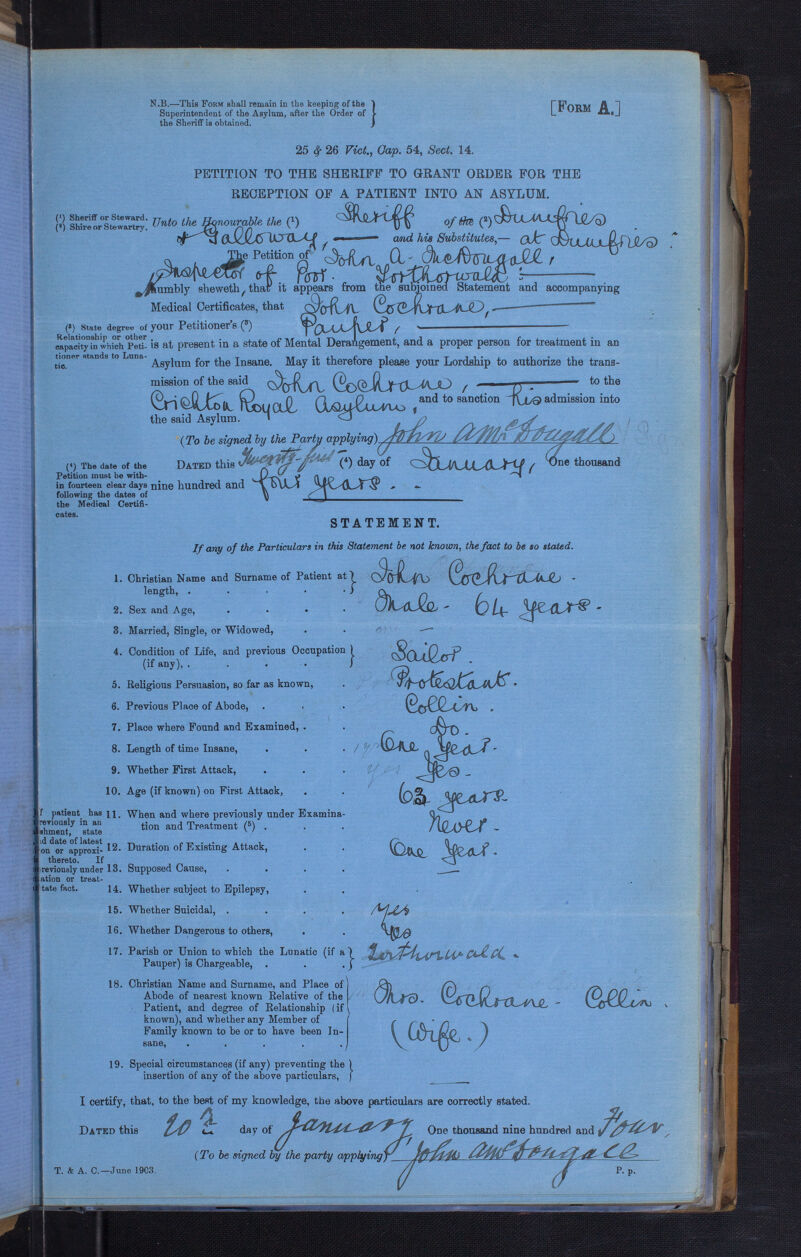 N.B.—This Form shall remain in the keeping of the
Superintendent of the Asylum, after the Order of
the Sheriff is obtained.
[Form A.]
25 & 26 Vict., Cap. 54, Sect. 14.
PETITION TO THE SHERIFF TO GRANT ORDER FOR THE
RECEPTION OF A PATIENT INTO AN ASYLUM.
(¹) Sheriff or Steward.
(²) Shire or Stewartry.
Unto the Honourable the (¹) Sheriff of the (²) Dumfries
& Galloway, — and his Substitutes,— at Dumfries.
The Petition of John A. McDougall,
Inspector of Poor. Torthorwald :—
Humbly sheweth, that it appears from the subjoined Statement and accompanying
Medical Certificates, that John Cochrane, —
(³) State degree of
Relationship or other
capacity in which Peti-
tioner stands to Luna-
tic.
your Petitioner's (³) Pauper, —
is at present in a state of Mental Derangement, and a proper person for treatment in an
Asylum for the Insane. May it therefore please your Lordship to authorize the trans-
mission of the said John Cochrane, — to the
Crichton Royal Asylum, and to sanction his admission into
the said Asylum.
(To be signed by the Party applying) John A McDougall
(⁴) The date of the
Petition must be with-
in fourteen clear days
following the dates of
the Medical Certifi-
cates.
Dated this Twenty-first (⁴) day of January, One thousand
nine hundred and four years. -
STATEMENT.
If any of the Particulars in this Statement be not known, the fact to be so stated.
1. Christian Name and Surname of Patient at length, . John Cochrane -
2. Sex and Age, Male - 64 years -
3. Married, Single, or Widowed, —
4. Condition of Life, and previous Occupation (if any), . Sailor.
5. Religious Persuasion, so far as known, Protestant.
6. Previous Place of Abode, . Collin.
7. Place where Found and Examined, . Do.
8. Length of time Insane, One Year.
9. Whether First Attack, Yes -
10. Age (if known) on First Attack, 63 years
f patient has
reviously in an
shment, state
d date of latest
on or approxi-
thereto. If
reviously under
ation or treat-
tate fact.
11. When and where previously under Examina-
tion and Treatment (⁵) . Never -
12. Duration of Existing Attack, One Year.
13. Supposed Cause, —
14. Whether subject to Epilepsy,
15. Whether Suicidal, . yes
16. Whether Dangerous to others, Yes
17. Parish or Union to which the Lunatic (if a
Pauper) is Chargeable, . Torthorwald.
18. Christian Name and Surname, and Place of
Abode of nearest known Relative of the
Patient, and degree of Relationship (if
known), and whether any Member of
Family known to be or to have been In-
sane, . Mrs. Cochrane - Collin.
(Wife.)
19. Special circumstances (if any) preventing the
insertion of any of the above particulars, —
I certify, that, to the best of my knowledge, the above particulars are correctly stated.
Dated this 20th day of January One thousand nine hundred and Four,
(To be signed by the party applying) John A McDougall
T. & A. C.—June 1903.
P. p.